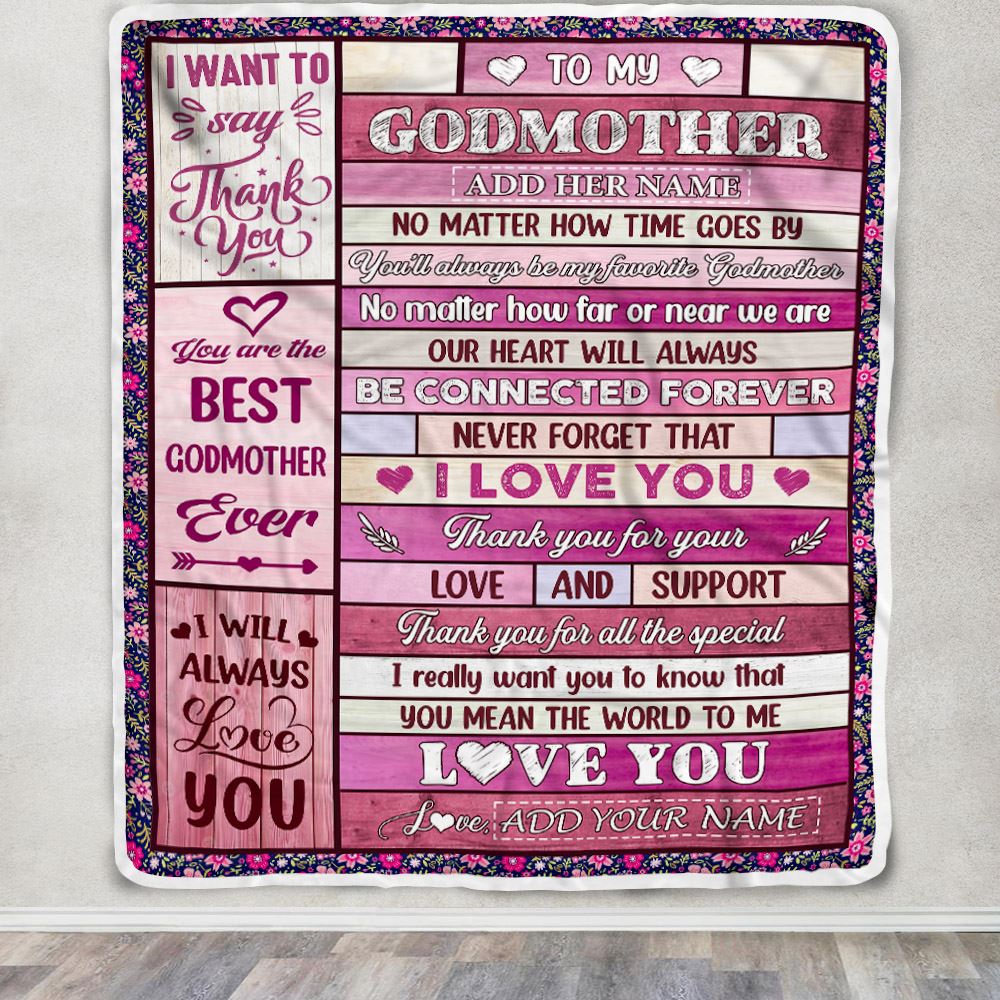 I WANT TO
say
Thank
You
You are the
BEST
GODMOTHER
Ever
I WILL
ALWAYS
Love
YOU
TO MY
GODMOTHER
ADD HER NAME
NO MATTER HOW TIME GOES BY
You'll always be my favorite Godmother
No matter how far or near we are
OUR HEART WILL ALWAYS
BE CONNECTED FOREVER
NEVER FORGET THAT
I LOVE YOU
Thank you for your
LOVE AND SUPPORT
Thank you for all the special
I really want you to know that
YOU MEAN THE WORLD TO ME
LOVE YOU
Love, ADD YOUR NAME